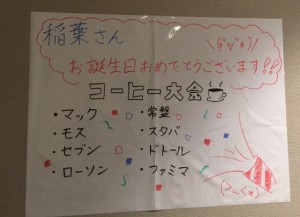 稲葉さん
\(°∀°)/
お誕生日おめでとうございます!!
コーヒー大会
・マック
・モス
・セブン
・ローソン
・常盤
・スタバ
・ドトール
・ファミマ